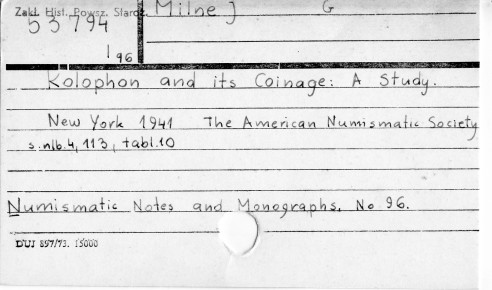 Zakł. Hist. Powsz. Staroż.
53794
196
Milne J G
Kolophon and its Coinage: A Study.
New York 1941 The American Numismatic Society
s. nlb. 4, 113, tabl. 10
Numismatic Notes and Monographs. No 96.
DUJ 897/73. 15000